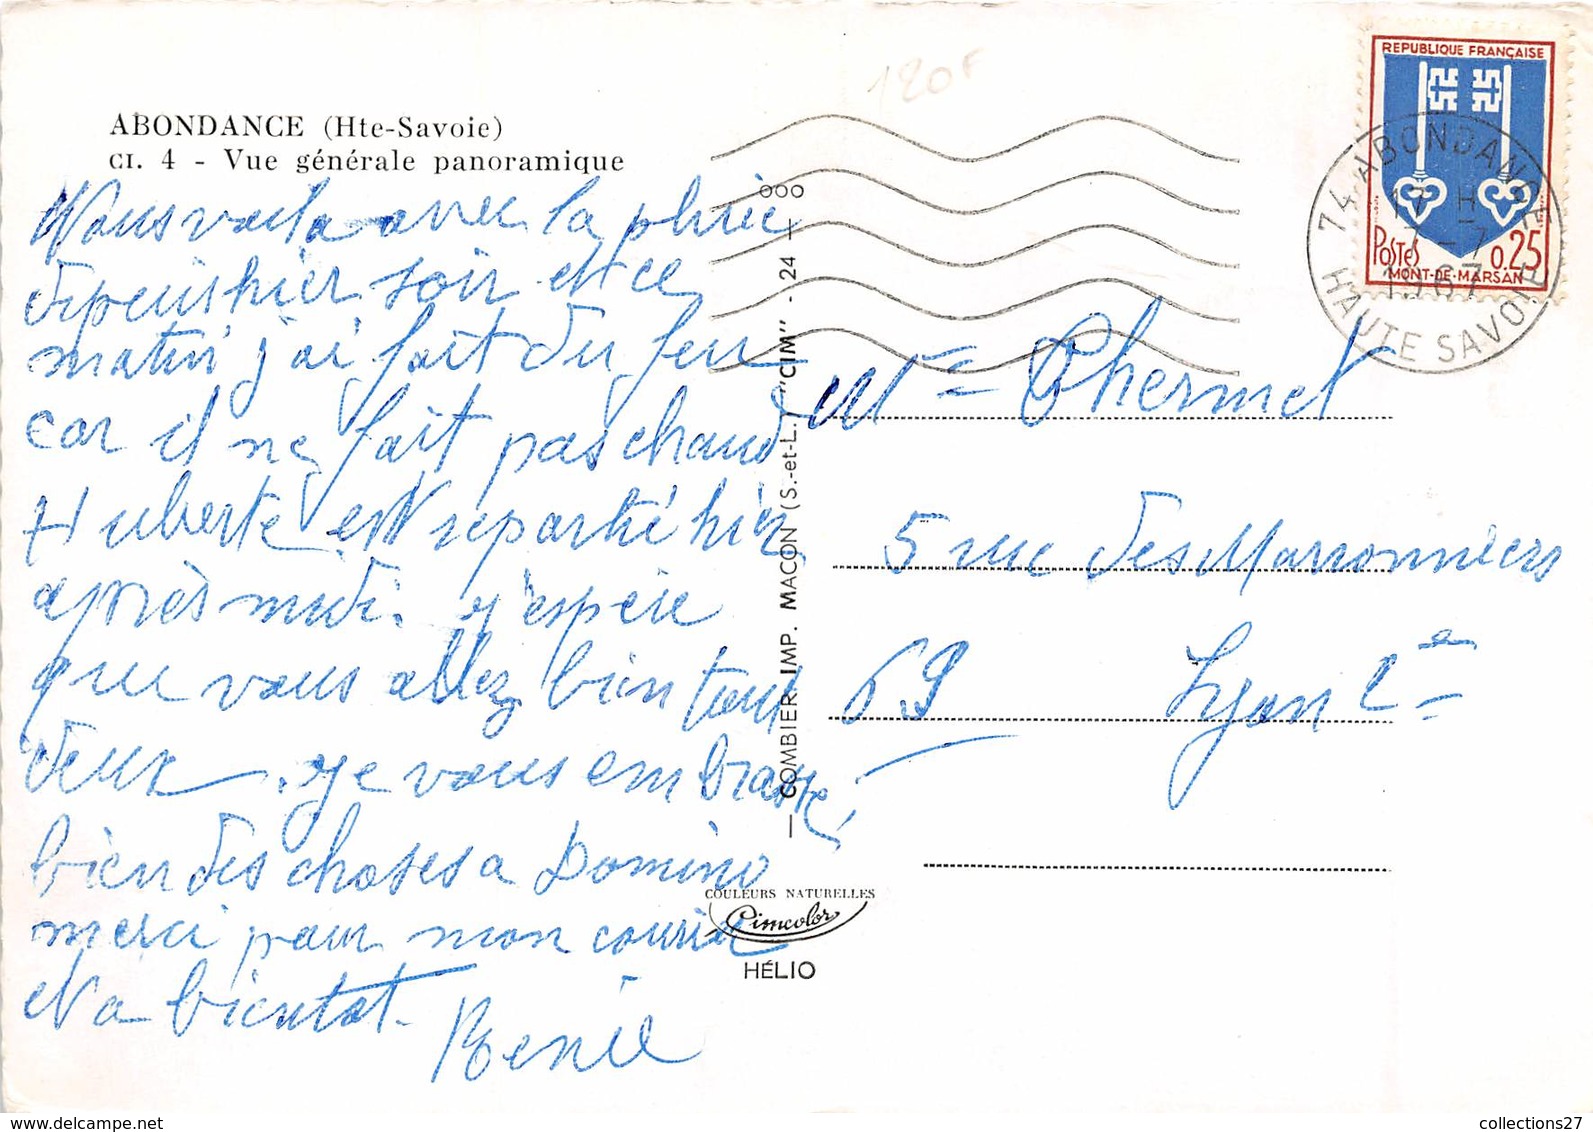 120F
ABONDANCE (Hte-Savoie)
CI. 4 - Vue générale panoramique
Nous voila avec la pluie
depuis hier soir et ce
matin j'ai fait du feu
car il ne fait pas chaud
Huberte est repartie hier
après midi. j'espère
que vous allez bien tous
deux. je vous embrasse
bien des choses a Domino
merci pour mon courrier
et a bientot.
Renée
COMBIER IMP. MACON (S.-et-L.) "CIM" - 24 - ooo
COULEURS NATURELLES
Cimcolor
HÉLIO
REPUBLIQUE FRANÇAISE
POSTES 0.25
MONT-DE-MARSAN
74 ABONDANCE
17 H
7-7
1967
HAUTE SAVOIE
Mme Phermet
5 rue des Marronniers
69 Lyon 2e
collections27